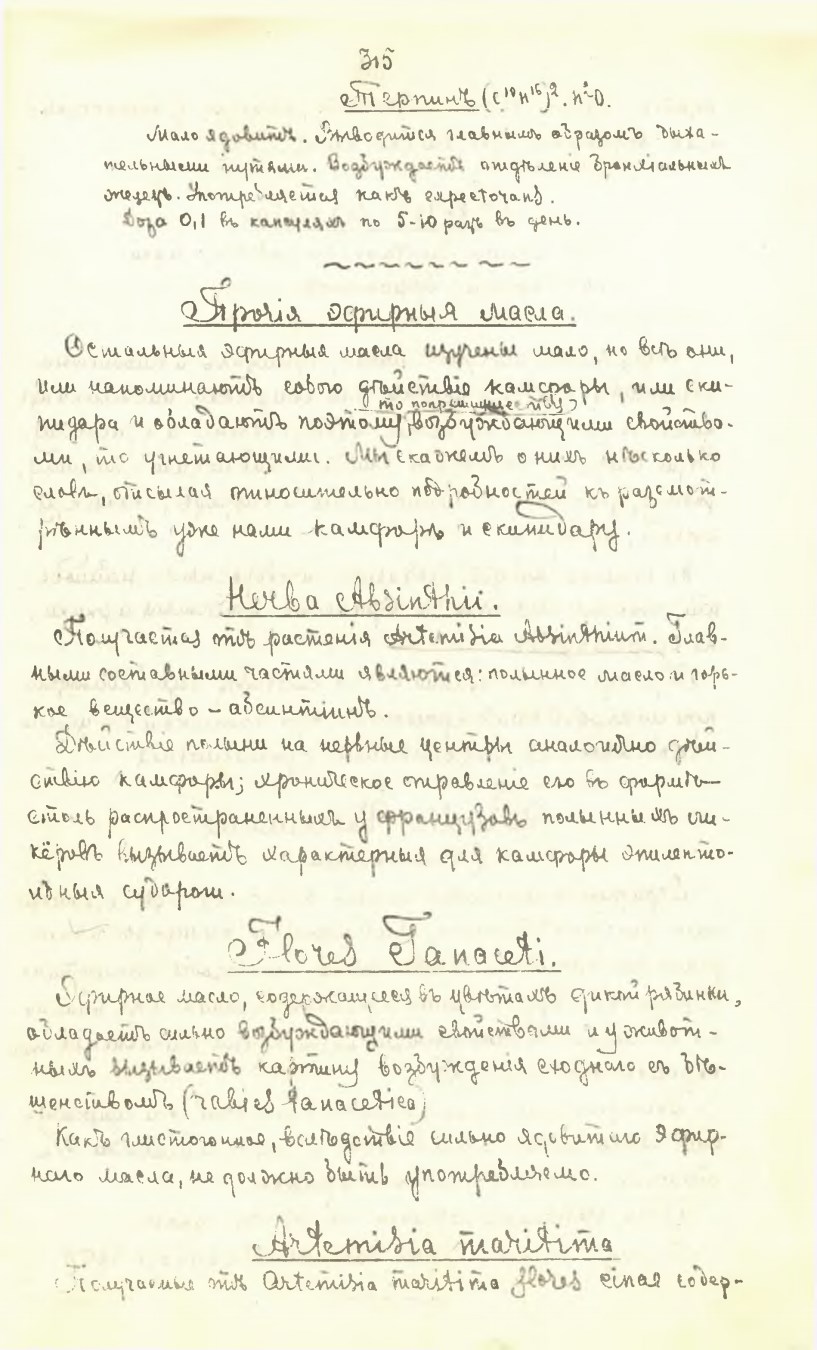 315
Терпинъ (C¹⁰H¹⁶)². H²O.
Мало ядовитъ. Выводится главнымъ образомъ дыха-
тельными путями. Возбуждаетъ отдѣленіе бронхіальныхъ
железъ. Употребляется какъ expectorans.
Доза 0,1 въ капсуляхъ по 5-10 разъ въ день.
Прочія эфирныя масла.
Остальныя эфирныя масла изучены мало, но всѣ они,
или напоминаютъ собою дѣйствіе камфоры, или ски-
пидара и обладаютъ поэтому, то возбуждающими свойства-
ми, то угнетающими. Мы скажемъ о нихъ нѣсколько
словъ, отсылая относительно подробностей къ разсмот-
рѣннымъ уже нами камфорѣ и скипидару.
Herba Absinthii.
Получается отъ растенія Artemisia Absinthium. Глав-
ными составными частями являются: полынное масло и горь-
кое вещество - абсинтіинъ.
Дѣйствіе полыни на нервные центры аналогично дѣй-
ствію камфоры; хроническое отравленіе ею въ формѣ
столь распространенныхъ у французовъ полынныхъ ли-
кёровъ вызываетъ характерныя для камфоры эпилепто-
идныя судороги.
Flores Tanaceti.
Эфирное масло, содержащееся въ цвѣтахъ дикой рябинки,
обладаетъ сильно возбуждающими свойствами и у живот-
ныхъ вызываетъ картину возбужденія сходнаго съ бѣ-
шенствомъ (rabies tanacetica)
Какъ глистогонное, вслѣдствіе сильно ядовитаго эфир-
наго масла, не должно быть употребляемо.
Artemisia maritima
Получаемые отъ Artemisia maritima flores cinae содер-